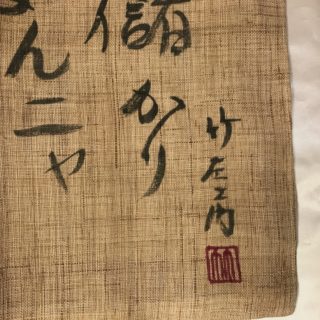 儲かり
んニャ
竹左ヱ門